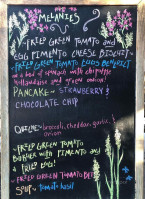 MELANIES
-FRIED GREEN TOMATO and
EGG PIMENTO CHEESE BISCUIT-
-FRIED GREEN TOMATO EGGS BENEDICT
on a bed of spinach with chipotle
hollandaise and green onion!
PANCAKE- STRAWBERRY &
CHOCOLATE CHIP
QUICHE- broccoli, cheddar, garlic,
onion
-FRIED GREEN TOMATO
BURGER WITH PIMENTO and
FRIED EGG!
-FRIED GREEN TOMATO BLT
SOUP- tomato basil